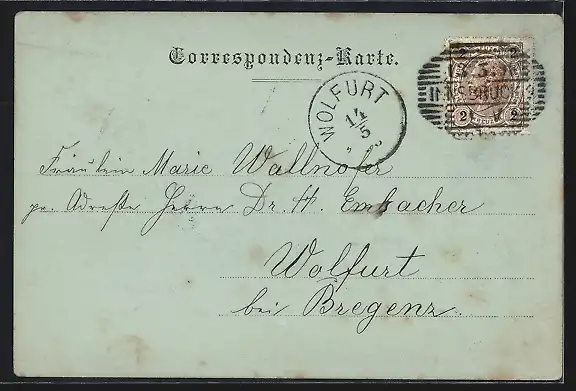 Correspondenz-Karte.
2 2
INNSBRUCK
2 2
WOLFURT
14/5
Fräulein Marie Wallnöfer
pr. Adreße Herrn Dr. H. Embacher
Wolfurt
bei Bregenz.